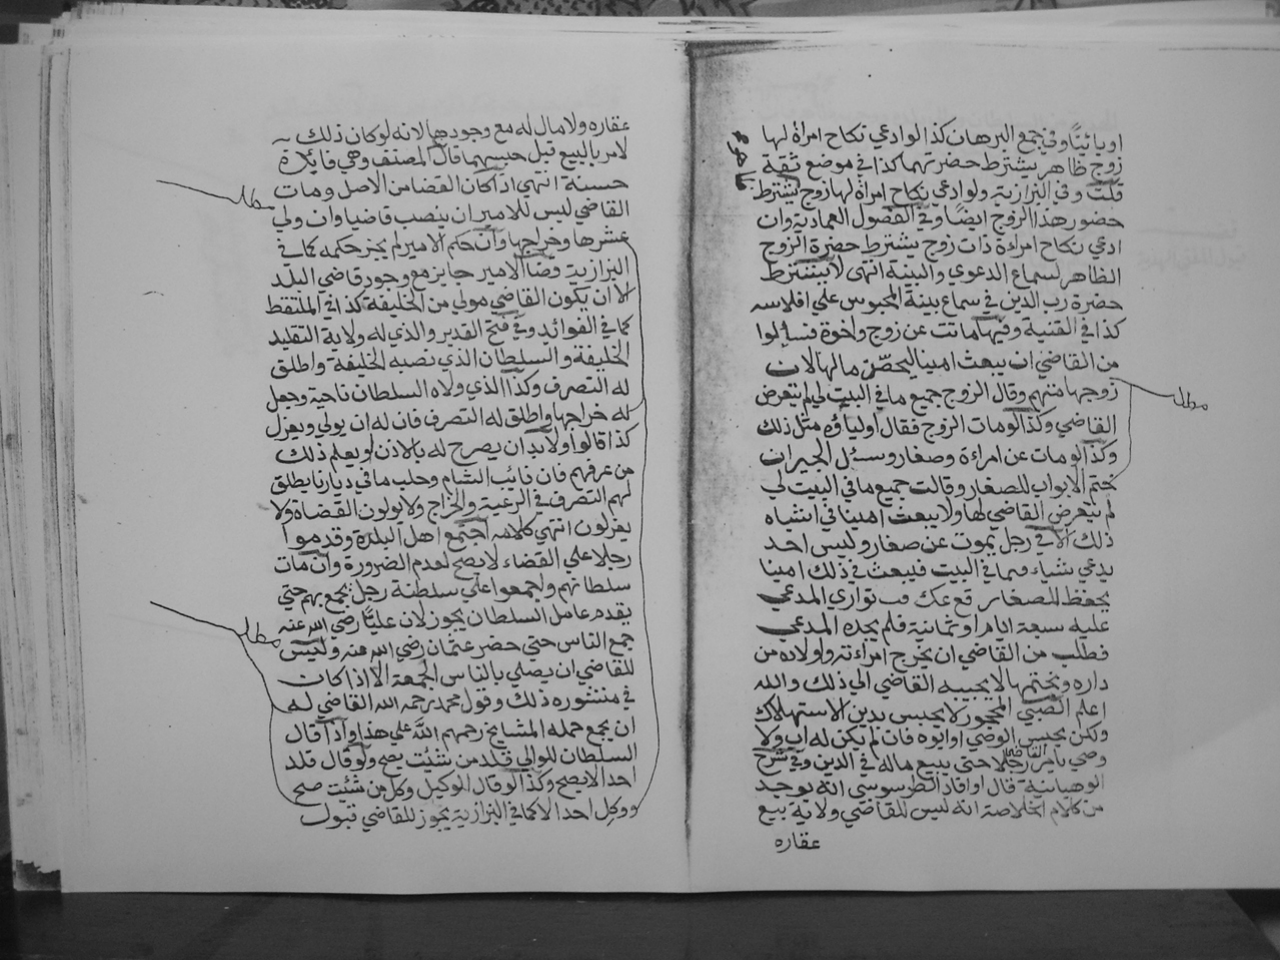 او بائنًا وفي جمع البرهان كذا لو ادعي نكاح امرأة لها
زوج ظاهر يشترط حضرتهما كذا في موضع ثقة
قلت وفي البزازية ولو ادعي نكاح امرأة لها زوج يشترط
حضور هذا الزوج ايضًا وفي الفصول العمادية وان
ادعي نكاح امراة ذات زوج يشترط حضرة الزوج
الظاهر لسماع الدعوي والبينة انتهى لا يشترط
حضرة رب الدين في سماع بينة المحبوس علي افلاسه
كذا في القنية وفيها ماتت عن زوج واخوة فسألوا
من القاضي ان يبعث امينا ليحصن مالها لان
زوجها متهم وقال الزوج جميع ما في البيت لي لم يتعرض
القاضي وكذا لو مات الزوج فقال اولياؤه مثل ذلك
وكذا لو مات عن امراة وصغار وسئل الجيران
ختم الابواب للصغار وقالت جميع ما في البيت لي
لم يتعرض القاضي لها ولا يبعث امينا في اشباه
ذلك الا في رجل يموت عن صغار وليس احد
يدعي شياء مما في البيت فيبعث في ذلك امينا
يحفظ للصغار قع عك مب تواري المدعي
عليه سبعة ايام او ثمانية فلم يجده المدعي
فطلب من القاضي ان يخرج امراته واولاده من
داره ويختمها لا يجيبه القاضي الي ذلك والله
اعلم الصبي المحجور لا يحبس بدين الاستهلاك
ولكن يحبس الوصي او ابوه فان لم يكن له اب ولا
وصي يامر القاضي رجلا حتى يبيع ماله في الدين وفي شرح
الوهبانية قال وافاد الطرسوسي انه يوجد
من كلام الخلاصة انه ليس للقاضي ولاية بيع
عقاره
مطلب
عقاره ولا مال له مع وجودهما لانه لو كان ذلك
لامر بالبيع قبل حبسهما قال المصنف وهي فايدة
حسنة انتهي اذا كان القضا من الاصل ومات
القاضي ليس للامير ان ينصب قاضيا وان ولي
عشرها وخراجها وان حكم الامير لم يجز حكمه كما في
البزازية وقضا الامير جايز مع وجود قاضي البلد
الا ان يكون القاضي مولي من الخليفة كذا في الملتقط
كما في الفوائد وفي فتح القدير والذي له ولاية التقليد
الخليفة والسلطان الذي نصبه الخليفة واطلق
له التصرف وكذا الذي ولاه السلطان ناحية وجعل
له خراجها واطلق له التصرف فان له ان يولي ويعزل
كذا قالوا ولا بد ان يصرح له بالاذن او يعلم ذلك
من عرفهم فان نائب الشام وحلب ما في ديارنا يطلق
لهم التصرف في الرعية والخراج ولا يولون القضاة ولا
يعزلون انتهي كلامه اجتمع اهل البلدة وقدموا
رجلا علي القضاء لا يصح لعدم الضرورة وان مات
سلطانهم واجمعوا علي سلطنة رجل يجمع بهم حتي
يقدم عامل السلطان يجوز لان عليًّا رضي الله عنه
جمع الناس حتي حضر عثمان رضي الله عنه وليس
للقاضي ان يصلي بالناس الجمعة الا اذا كان
في منشوره ذلك وقول محمد رحمه الله القاضي له
ان يجمع حمله المشايخ رحمهم الله علي هذا واذا قال
السلطان للوالي قلد من شئت يصح ولو قال قلد
احدا لا يصح وكذا لو قال لوكيل وكل من شئت صح
ووكل احدا لا كما في البزازية يجوز للقاضي قبول
مطلب
مطلب